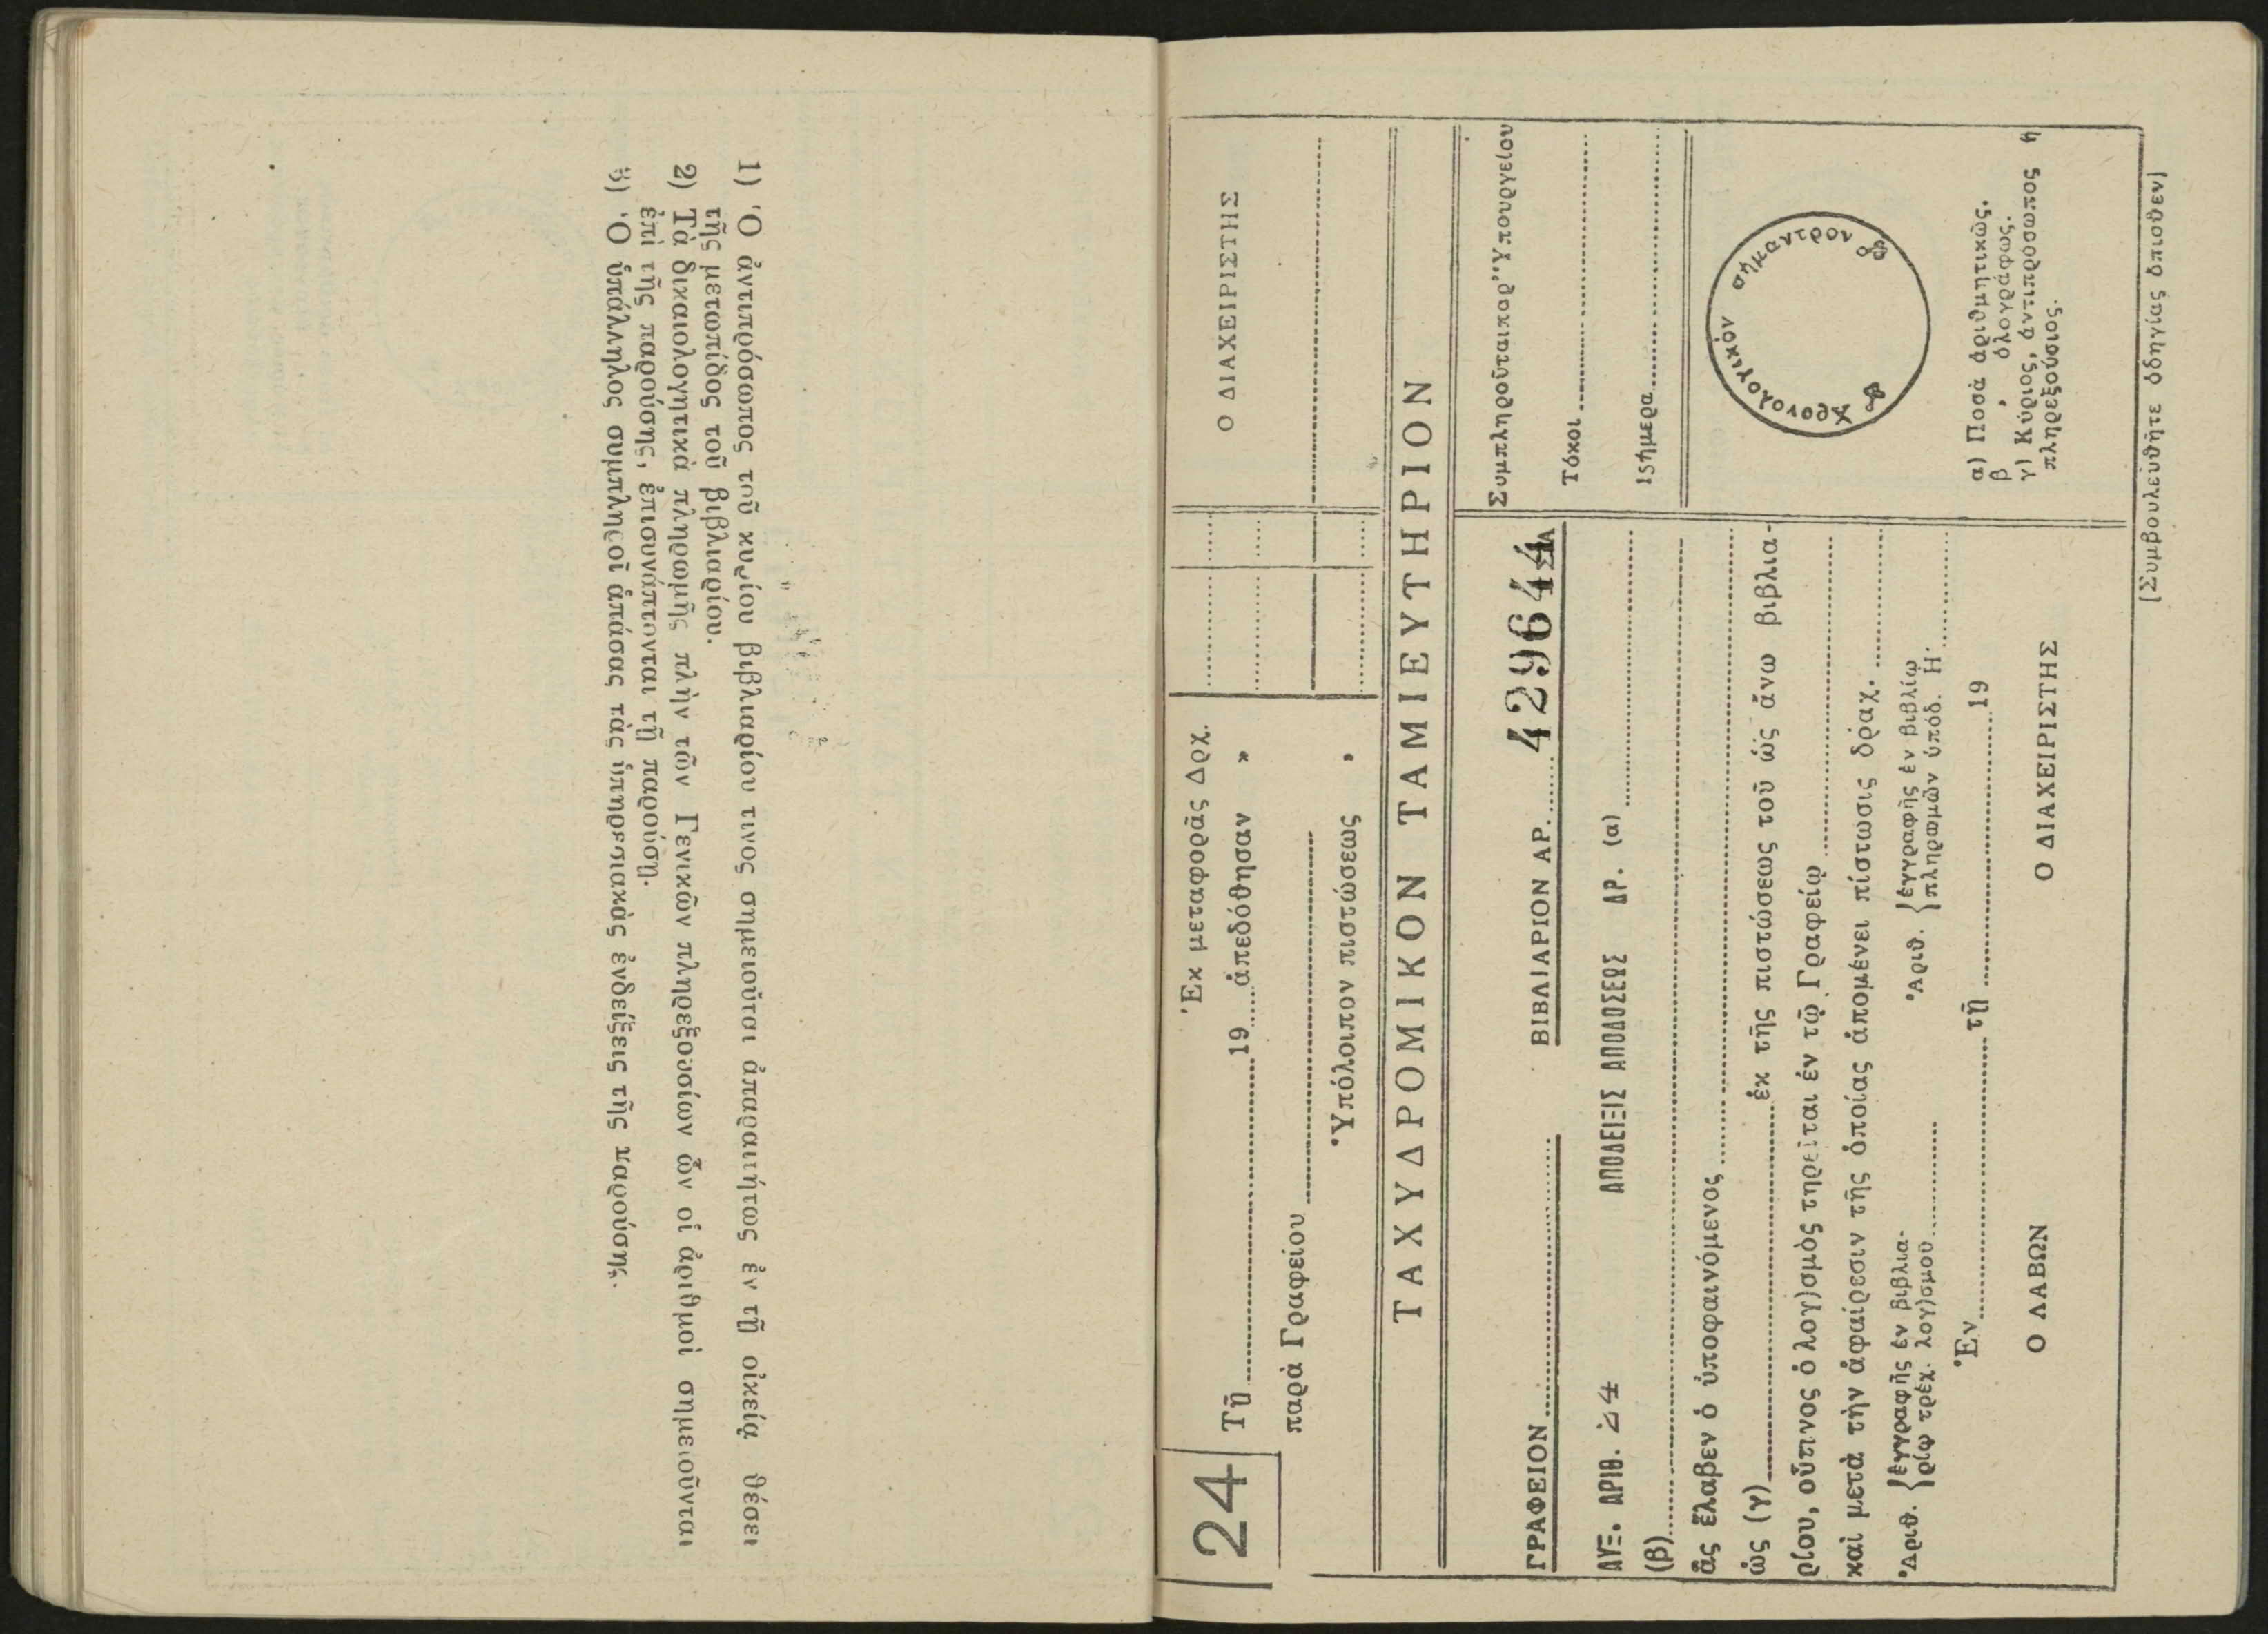 1) Ὁ ἀντιπρόσωπος τοῦ κυρίου βιβλιαρίου τινος σημειοῦται ἀπαραιτήτως ἐν τῇ οἰκείᾳ θέσει
τῆς μετωπίδος τοῦ βιβλιαρίου.
2) Τὰ δικαιολογητικὰ πληρωμῆς πλὴν τῶν Γενικῶν πληρεξουσίων ὧν οἱ ἀριθμοὶ σημειοῦνται
ἐπὶ τῆς παρούσης, ἐπισυνάπτονται τῇ παρούσῃ.
3) Ὁ ὑπάλληλος συμπληροῖ ἁπάσας τὰς ὑπηρεσιακὰς ἐνδείξεις τῆς παρούσης.
24
Ἐκ μεταφορᾶς Δρχ.
Ο ΔΙΑΧΕΙΡΙΣΤΗΣ
Τῇ 19 ἀπεδόθησαν »
παρὰ Γραφείου
Ὑπόλοιπον πιστώσεως »
ΤΑΧΥΔΡΟΜΙΚΟΝ ΤΑΜΙΕΥΤΗΡΙΟΝ
ΓΡΑΦΕΙΟΝ ΒΙΒΛΙΑΡΙΟΝ ΑΡ. 429644
ΑΥΞ. ΑΡΙΘ. 24 ΑΠΟΔΕΙΞΙΣ ΑΠΟΔΟΣΕΩΣ ΔΡ. (α)
(β)
ἃς ἔλαβεν ὁ ὑποφαινόμενος
ὡς (γ) ἐκ τῆς πιστώσεως τοῦ ὡς ἄνω βιβλια-
ρίου, οὕτινος ὁ λογ)σμὸς τηρεῖται ἐν τῷ Γραφείῳ
καὶ μετὰ τὴν ἀφαίρεσιν τῆς ὁποίας ἀπομένει πίστωσις δραχ.
Ἀριθ. {ἐγγραφῆς ἐν βιβλια-
ρίῳ τρέχ. λογ)σμοῦ
Ἀριθ. {ἐγγραφῆς ἐν βιβλίῳ
πληρωμῶν ὑπόδ. Η΄
Ἐν τῇ 19
Ο ΛΑΒΩΝ Ο ΔΙΑΧΕΙΡΙΣΤΗΣ
Συμπληροῦται παρ' Ὑπουργείου
Τόκοι
15ήμερα
Χρονολογικόν σήμαντρον
α) Ποσὰ ἀριθμητικῶς.
β , ὁλογράφως.
γ) Κύριος, ἀντιπρόσωπος ἢ
πληρεξούσιος.
[Συμβουλευθῆτε ὁδηγίας ὄπισθεν]